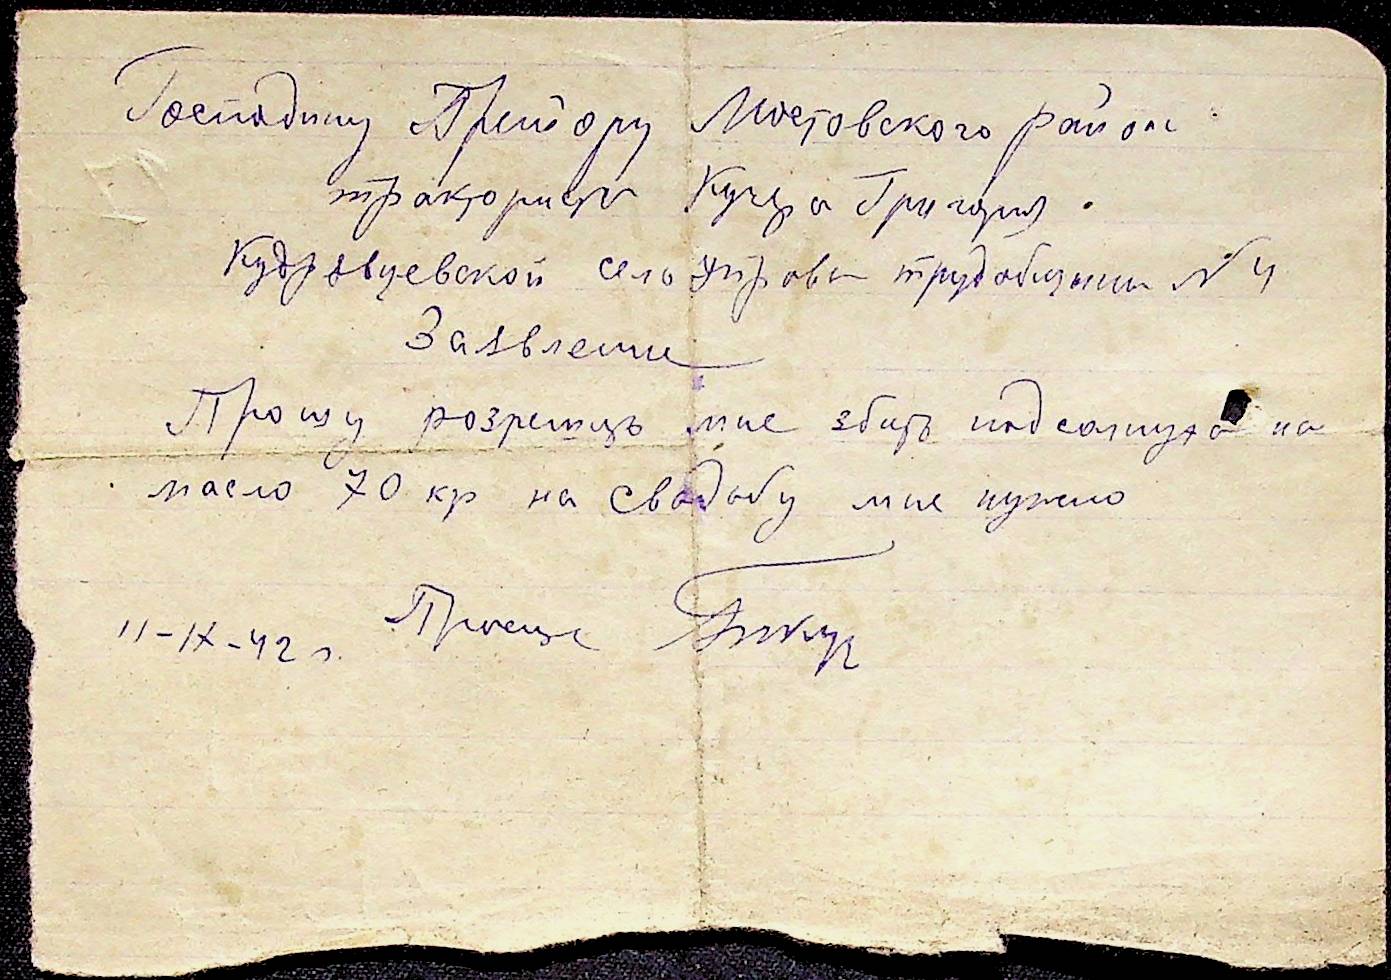 Господину Прейору Мостовского район
тракториста Кучера Григория.
Кудрявцевской сель управы трудобщины № 4
Заявление
Прошу розрешить мне збить подсолнуха на
масло 70 кг на свадьбу мне нужно
11-IX-42 г. Проситель